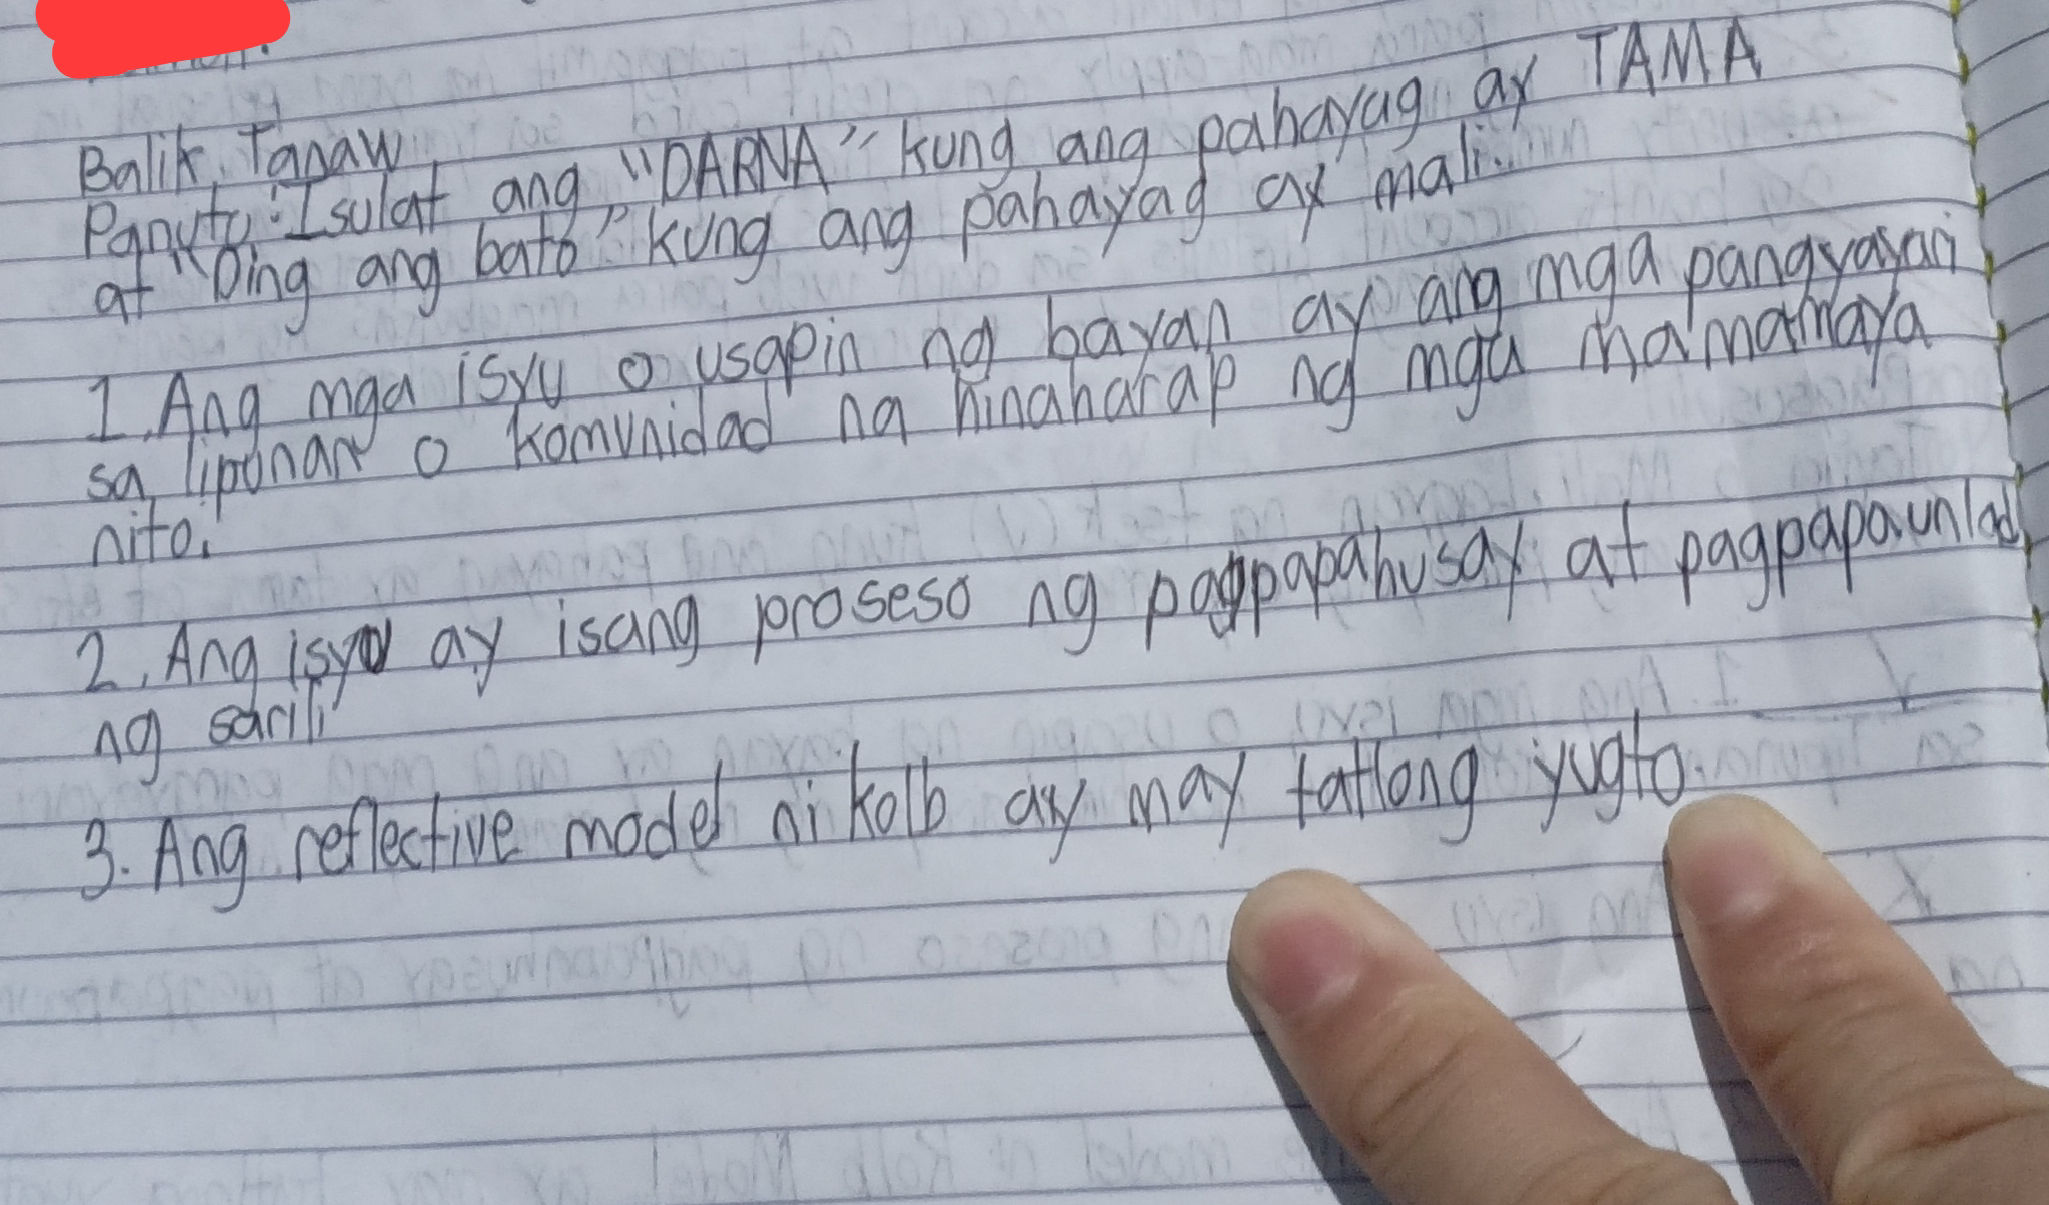 Balik Tanaw
Panuto: Isulat ang "DARNA" kung ang pahayag ay TAMA
at "Ding ang bato" kung ang pahayag ay mali.
1. Ang mga isyu o usapin ng bayan ay ang mga pangyayari
sa lipunan o komunidad na hinaharap ng mga mamamaya
nito.
2. Ang isyu ay isang proseso ng pagpapahusay at pagpapaunlad
ng sarili
3. Ang reflective model ni kolb ay may tatlong yugto.